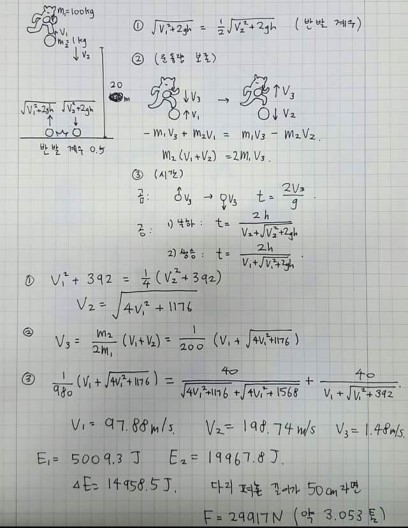 m₁=100kg
m₂=1kg
↑V₁
↓V₂
20
m
√V₁²+2gh √V₂²+2gh
반발계수 0.5
① √V₁²+2gh = 1/2 √V₂²+2gh (반발 계수)
② (운동량 보존)
↓V₃ → ↑V₃
↑V₁ ↓V₂
-m₁V₃ + m₂V₁ = m₁V₃ - m₂V₂
m₂(V₁+V₂) = 2m₁V₃
③ (시간)
곰: ↑V₃ → ↓V₃ t = 2V₃/g
공: 1) 낙하: t = 2h/(V₂+√V₂²+2gh)
2) 상승: t = 2h/(V₁+√V₁²+2gh)
① V₁² + 392 = 1/4 (V₂² + 392)
V₂ = √4V₁² + 1176
② V₃ = m₂/2m₁ (V₁+V₂) = 1/200 (V₁ + √4V₁²+1176)
③ 1/980 (V₁ + √4V₁²+1176) = 40/(√4V₁²+1176 + √4V₁²+1568) + 40/(V₁ + √V₁²+392)
V₁ = 97.88m/s. V₂ = 198.74 m/s V₃ = 1.48m/s.
E₁ = 5009.3 J E₂ = 19967.8 J.
ΔE = 14958.5 J. 다리 길이가 50cm 라면
F = 29917N (약 3.053 톤)